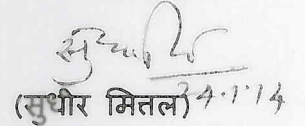 सुधीर
(सुधीर मित्तल) 24.1.14